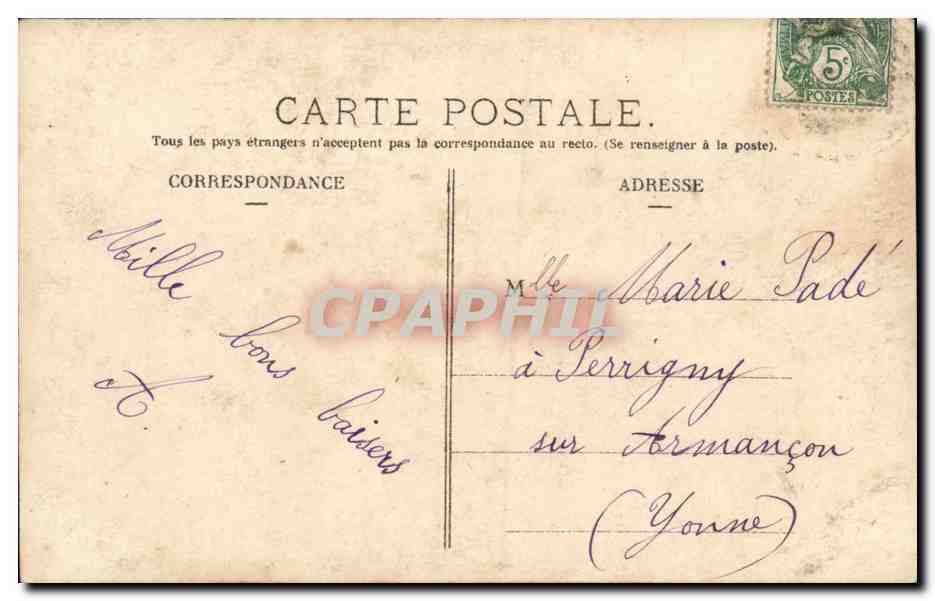 5c
POSTES
CARTE POSTALE.
Tous les pays étrangers n'acceptent pas la correspondance au recto. (Se renseigner à la poste).
CORRESPONDANCE
Mille
bons
baisers
A.
ADRESSE
Mlle Marie Padé
à Perrigny
sur Armançon
(Yonne)
CPAPHIL